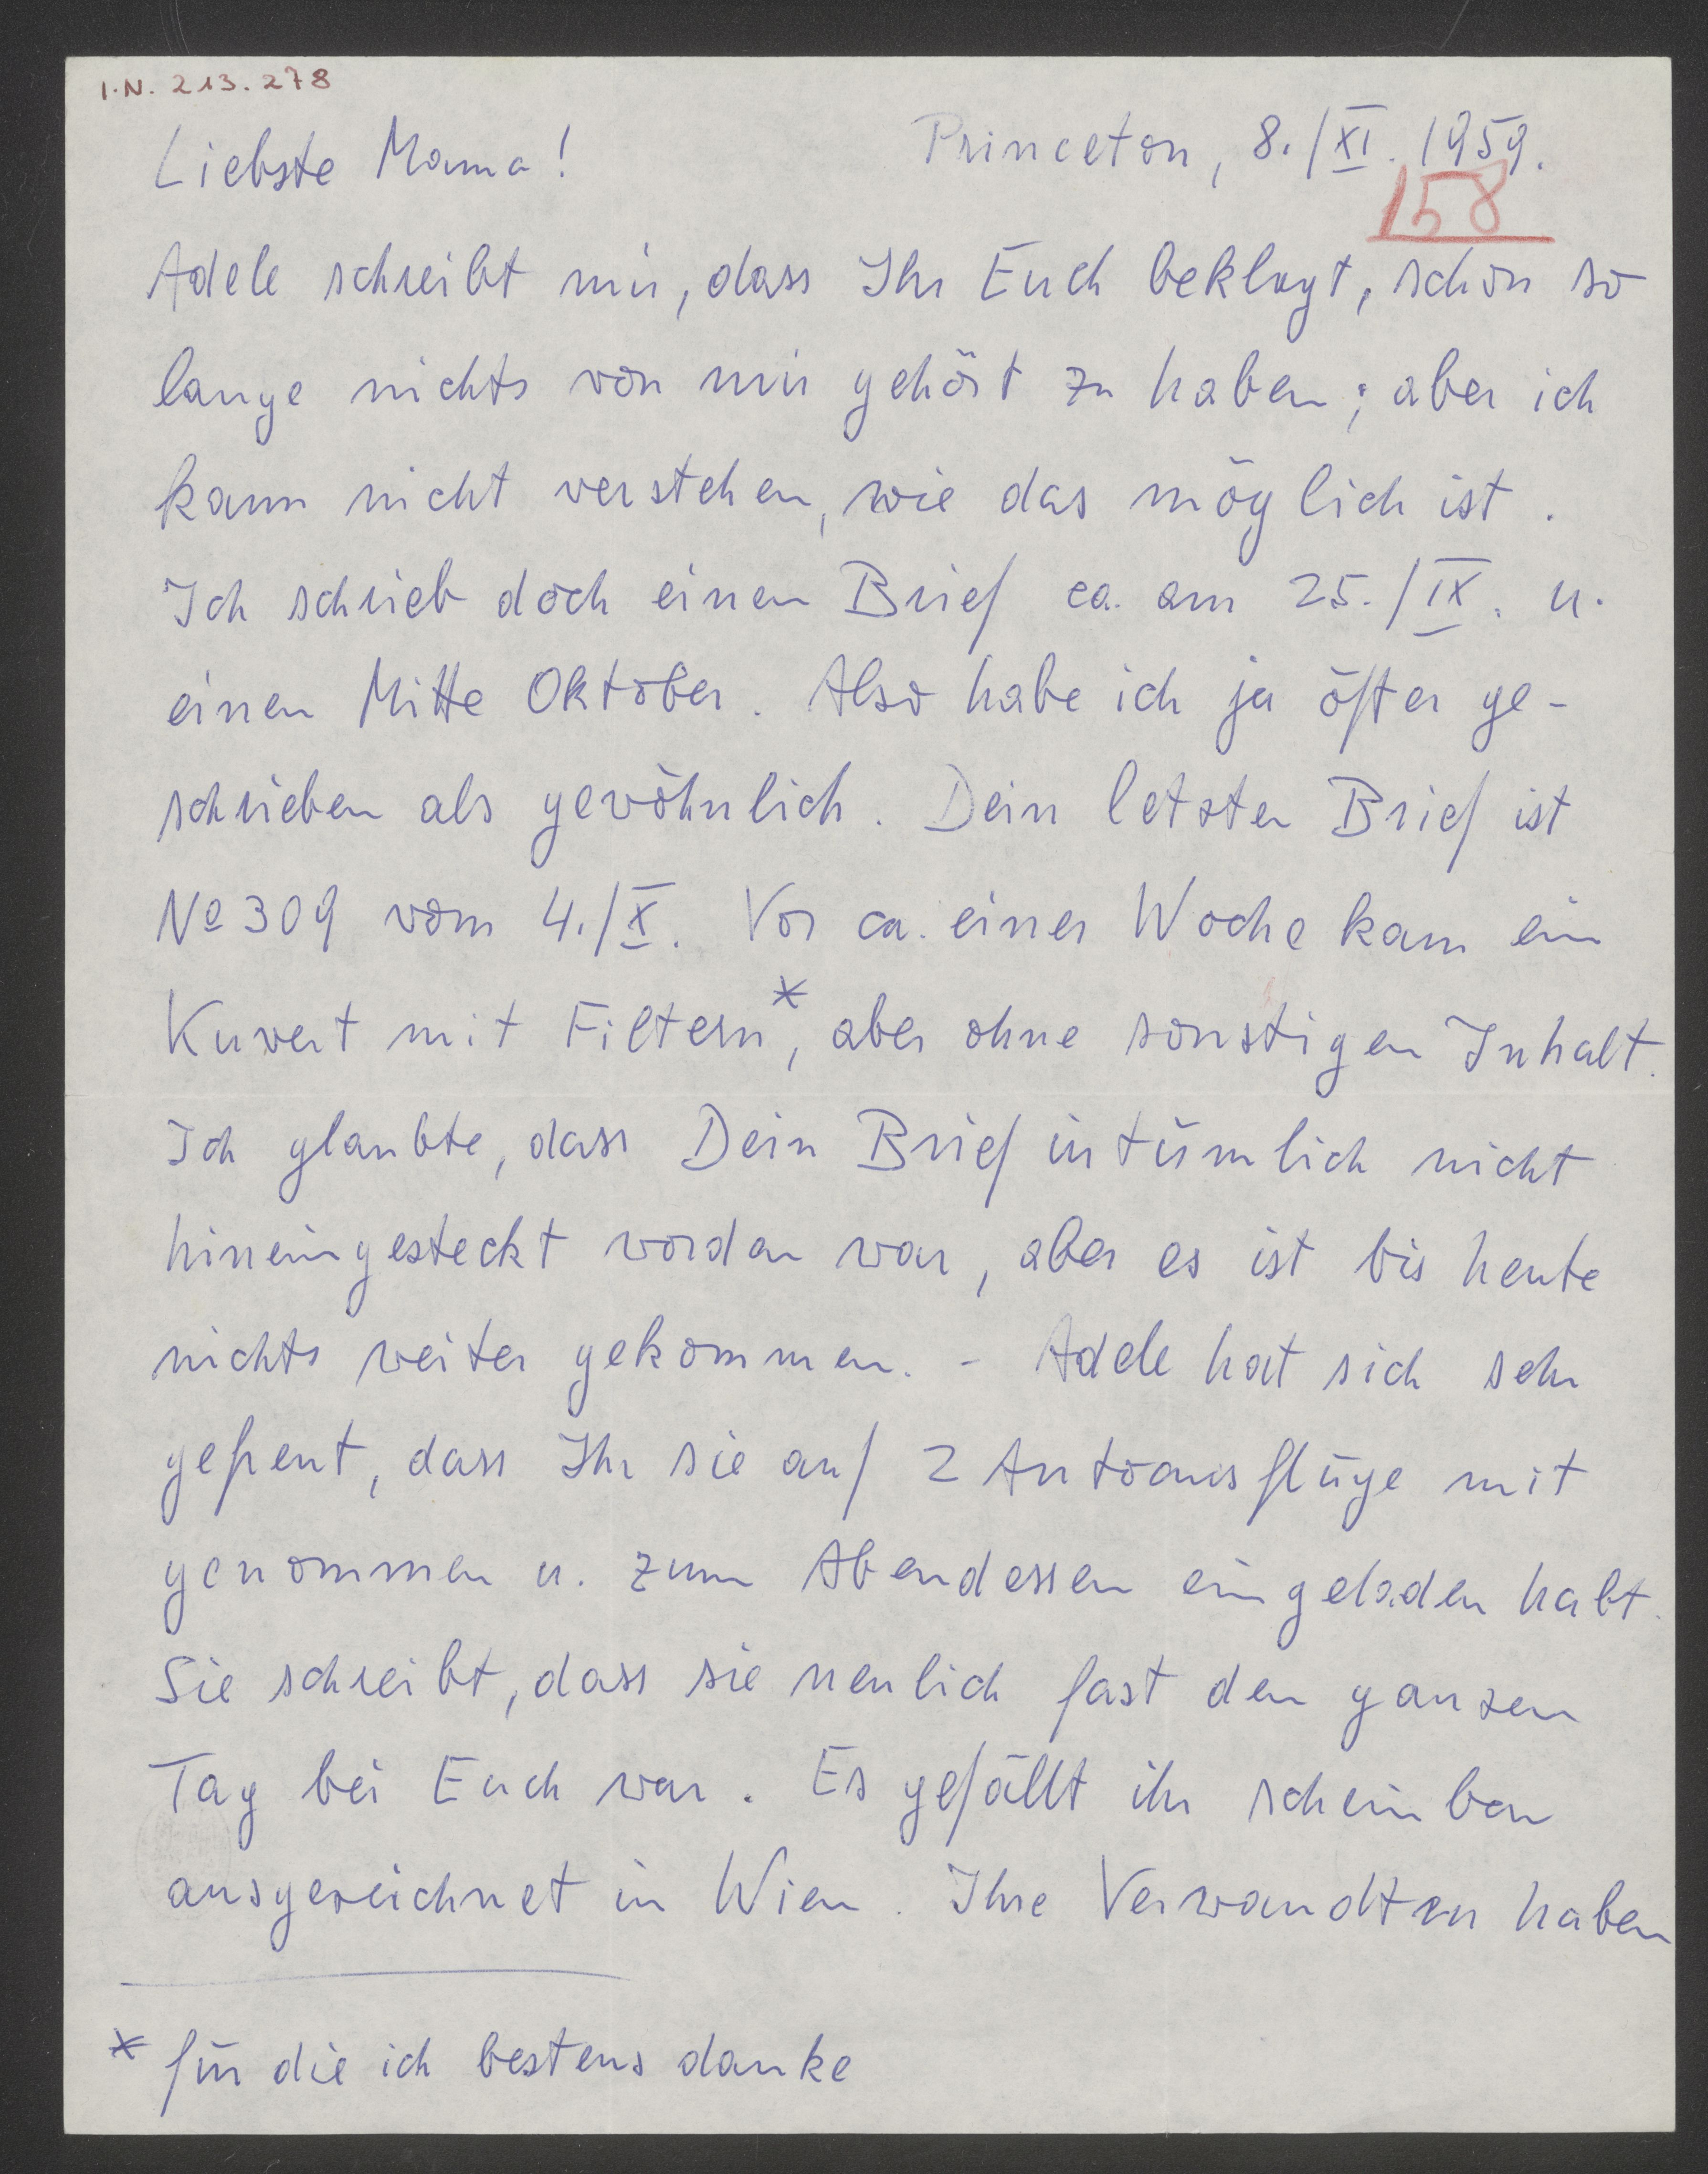 I.N. 213.278
Liebste Mama! Princeton, 8./XI. 1959.
158
Adele schreibt mir, dass Ihr Euch beklagt, schon so
lange nichts von mir gehört zu haben; aber ich
kann nicht verstehen, wie das möglich ist.
Ich schrieb doch einen Brief ca. am 25./IX. u.
einen Mitte Oktober. Also habe ich ja öfter ge-
schrieben als gewöhnlich. Dein letzter Brief ist
No 309 vom 4./X. Vor ca. einer Woche kam ein
Kuvert mit Filtern*, aber ohne sonstigen Inhalt.
Ich glaubte, dass Dein Brief irrtümlich nicht
hineingesteckt worden war, aber es ist bis heute
nichts weiter gekommen. - Adele hat sich sehr
gefreut, dass Ihr sie auf 2 Autoausflüge mit
genommen u. zum Abendessen eingeladen habt.
Sie schreibt, dass sie neulich fast den ganzen
Tag bei Euch war. Es gefällt ihr scheinbar
ausgezeichnet in Wien. Ihre Verwandten haben
* für die ich bestens danke